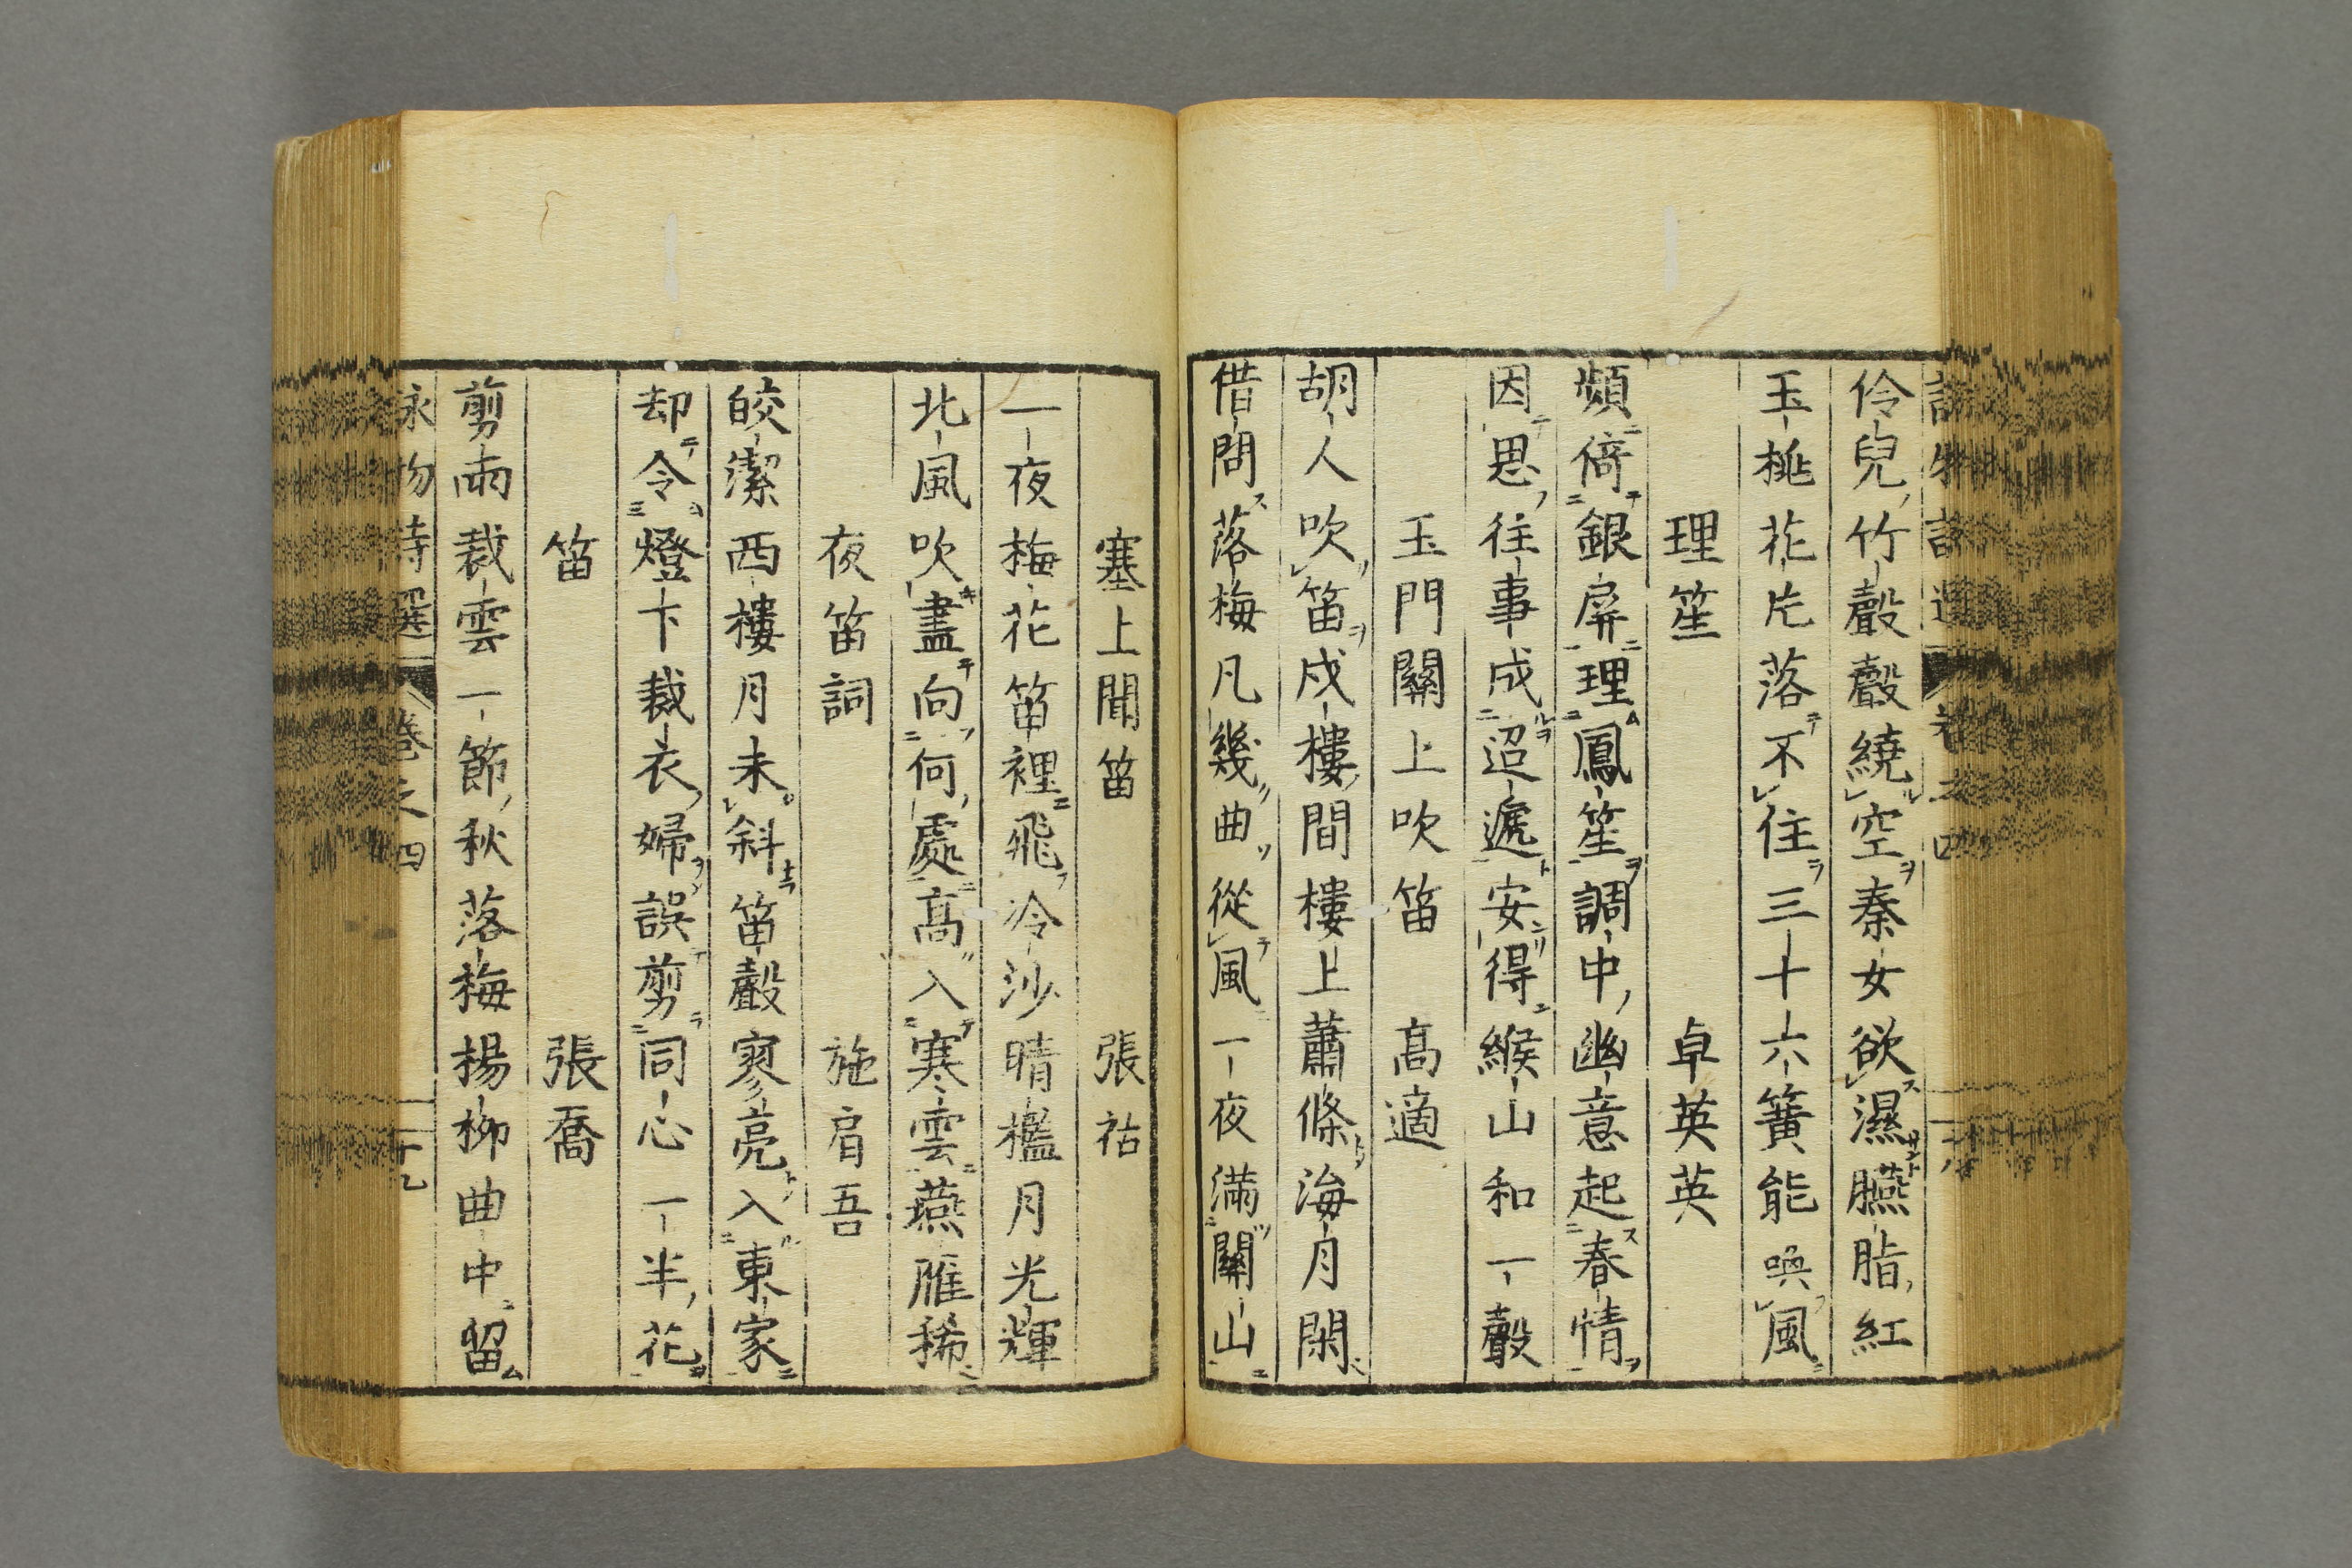 伶兒竹聲聲繞空秦女欲濕臙脂紅
玉桃花片落不住三十六簧能喚風
理笙　卓英英
頻倚銀屏理鳳笙調中幽意起春情
因思往事成迢遞安得緱山和一聲
玉門關上吹笛　高適
胡人吹笛戍樓間樓上蕭條海月閑
借問落梅凡幾曲從風一夜滿關山
塞上聞笛　張祜
一夜梅花笛裡飛冷沙晴檻月光輝
北風吹盡向何處高入寒雲燕雁稀
夜笛詞　施肩吾
皎潔西樓月未斜笛聲寥亮入東家
却令燈下裁衣婦誤剪同心一半花
笛　張喬
剪雨裁雲一節秋落梅楊柳曲中留
詠物詩選　卷之四